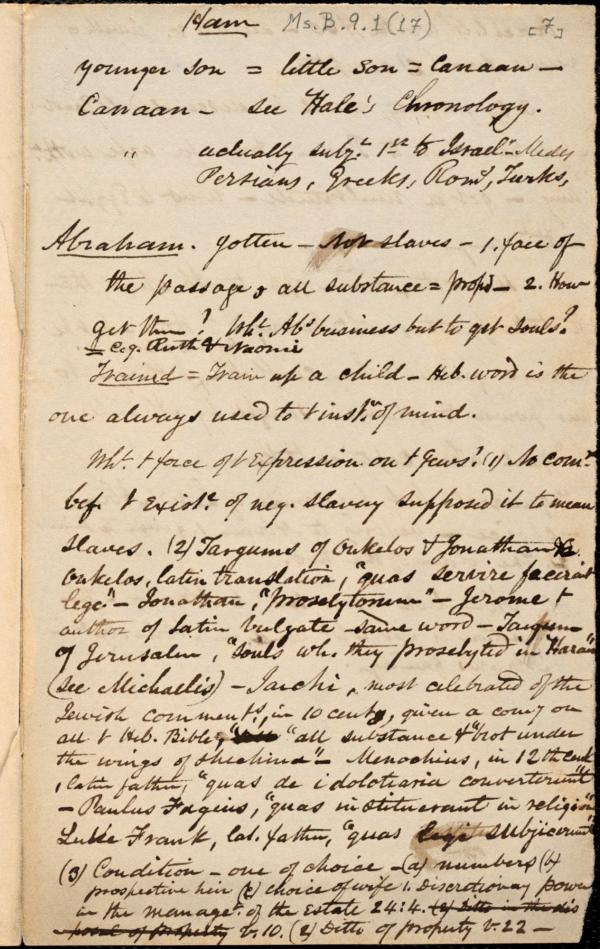 Ham Ms. B. 9. 1 (17) [7]
younger son = little son = Canaan —
Canaan — see Hale's Chronology.
" actually subj.t 1st to Israel.s Medes
Persians, Greeks, Rom.s, Turks,
Abraham. gotten — not slaves — 1. face of
the passage, all substance = prop.y — 2. How
get them? Wh.t Ab.s business but to get souls?
— e.g. Ruth & Naomi
Trained = Train up a child — Heb. word is the
one always used to t inst.n of mind.
Wh.t t force of t Expression on t Jews? (1) No com.r
bef. t Exist.e of neg. slavery supposed it to mean
slaves. (2) Targums of Onkelos & Jonathan
Onkelos, latin translation, "quas servire fecerat
lege" — Jonathan, "proselytorum" — Jerome t
author of Latin Vulgate same word — Targum
of Jerusalem, "souls wh. they proselyted in Haran"
(see Michaelis) — Jarchi, most celebrated of the
Jewish comment.s, in 10 cent.y, given a com.y on
all t Heb. Bible, "all substance & "brot under
the wings of Shechina" — Menochius, in 12th cent
, latin father, "quas de idolotaria converterunt"
— Paulus Fagius, "quas instituerant in religion"
Luke Frank, Lat. father, "quas legi subjicerunt"
(3) Condition — one of choice — (a) numbers (b)
prospective heir (c) choice of wife 1. Discretionary power
in the manage.t of the Estate 24:4. (2) Ditto in the dis
posal of property v. 10. (2) Ditto of property v. 22 —